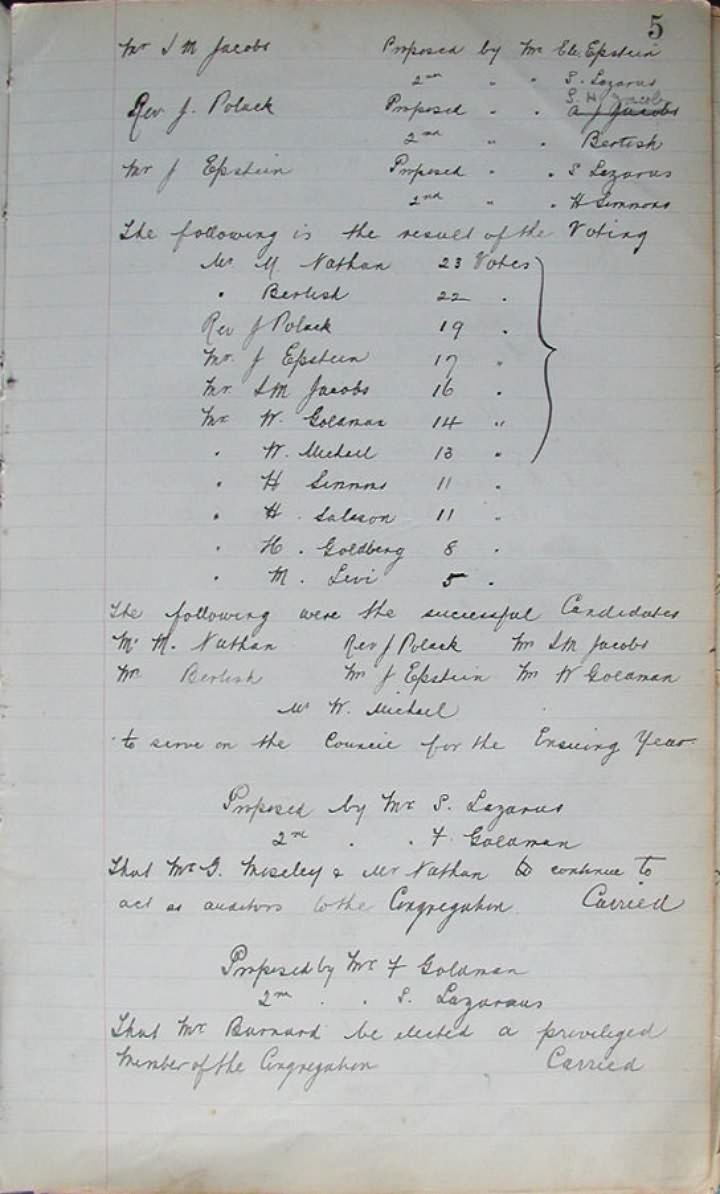 5
Mr I M Jacobs Proposed by Mr Eli Epstein
2nd " " S. Lazarus
S. H. Jacobs
Rev J. Polack Proposed " " A J Jacobs
2nd " " Bertish
Mr J Epstein Proposed " " S Lazarus
2nd " " H Simmons
The following is the result of the Voting
Mr. M Nathan 23 Votes
" Bertish 22 "
Rev J Polack 19 "
Mr. J Epstein 17 "
Mr. I M Jacobs 16 "
Mr W. Goldman 14 "
" W. Michael 13 "
" H Simmons 11 "
" H. Salason 11 "
" H. Goldberg 8 "
" M. Levi 5 "
The following were the successful Candidates
Mr M. Nathan Rev J Polack Mr I M Jacobs
Mr Bertish Mr J Epstein Mr W Goldman
Mr W. Michael
to serve on the Council for the Ensuing Year.
Proposed by Mr S. Lazarus
2nd " " F. Goldman
That Mr G. Moseley & Mr Nathan to continue to
act as auditors to the Congregation. Carried
Proposed by Mr F Goldman
2nd " " S. Lazaraus
That Mr Barnard be elected a priviliged
Member of the Congregation Carried